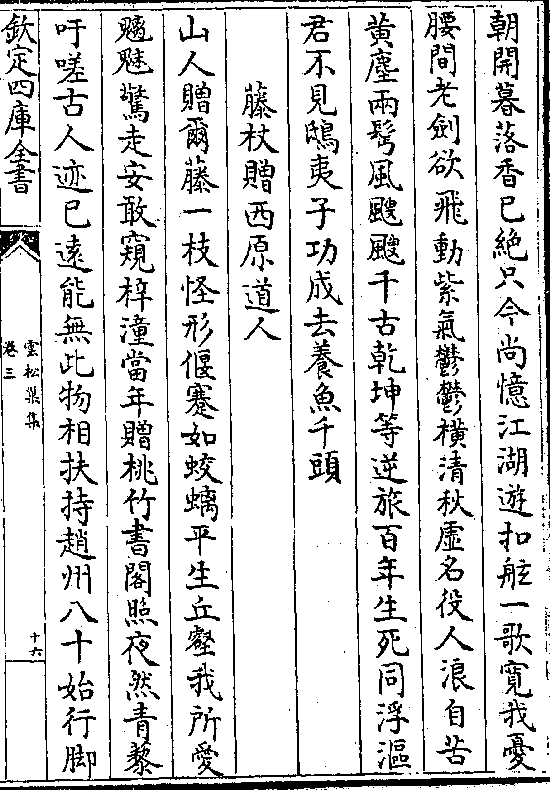 朝開暮落香已絶只今尚憶江湖遊扣舷一歌寛我憂
腰間老劍欲飛動紫氣鬱鬱橫清秋虛名役人浪自苦
黄塵兩髩風颼颼千古乾坤等逆旅百年生死同浮漚
君不見鴟夷子功成去養魚千頭
藤杖贈西原道人
山人贈爾藤一枝怪形偃蹇如蛟螭平生丘壑我所愛
魑魅驚走安敢窺梓潼當年贈桃竹書閣照夜然青藜
吁嗟古人迹已遠能無此物相扶持趙州八十始行脚
欽定四庫全書
雲松巢集
卷三
十六